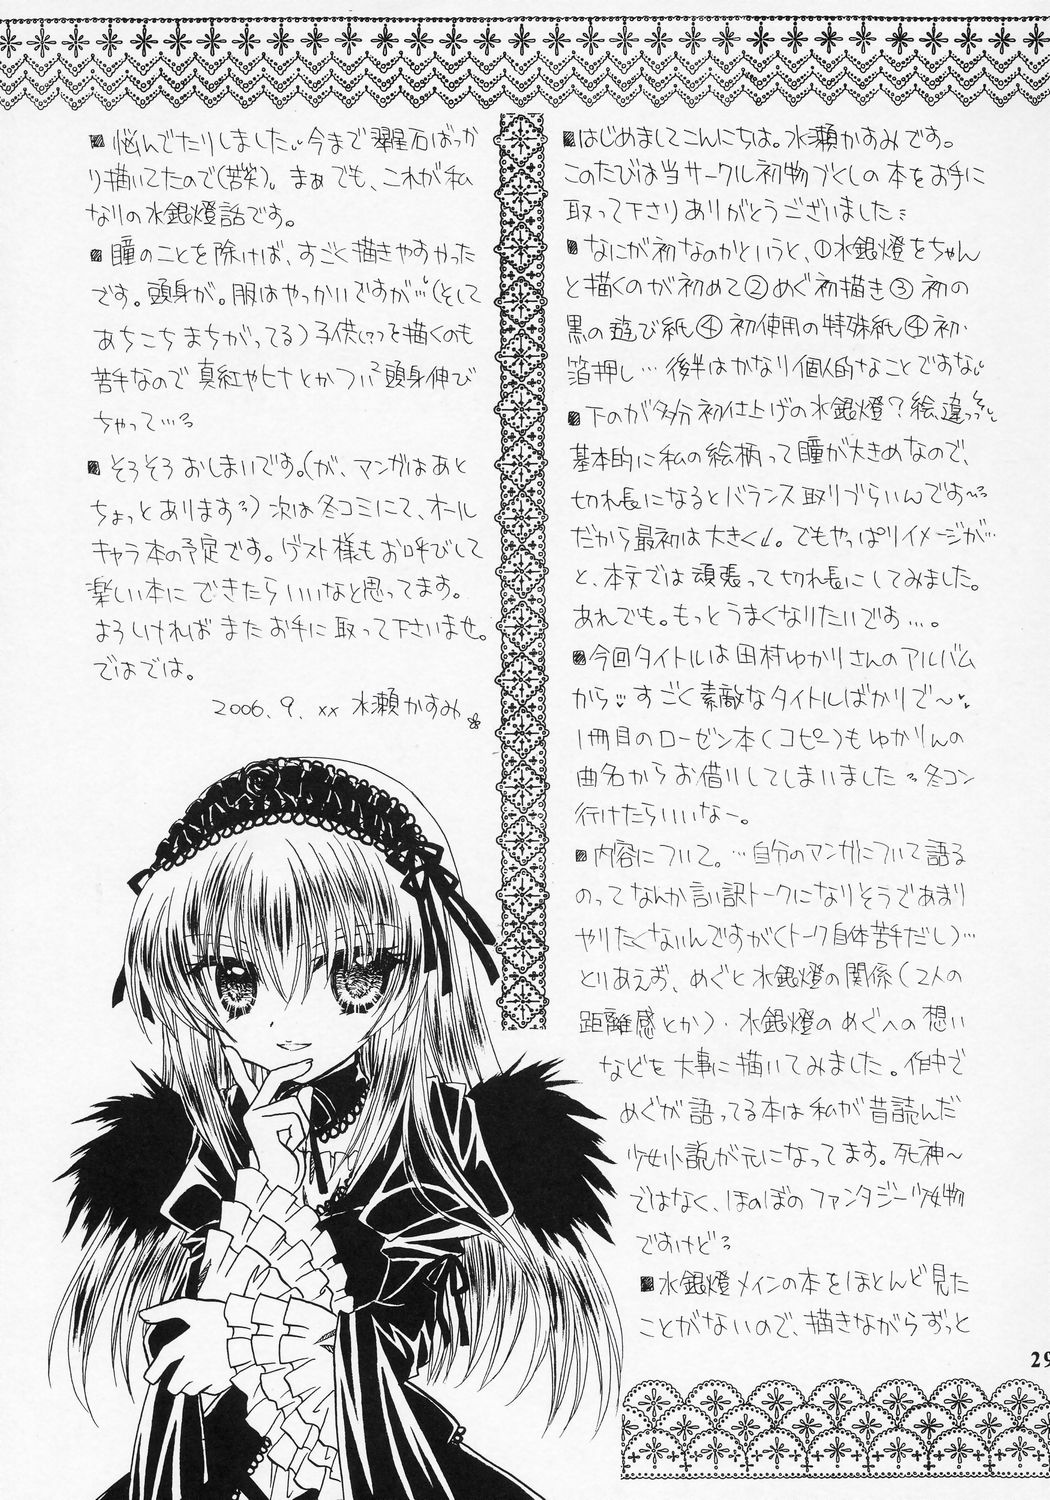 ■はじめましてこんにちは。水瀬かすみです。
このたびは当サークル初物づくしの本をお手に
取って下さりありがとうございました
■なにが初なのかというと、①水銀燈をちゃん
と描くのが初めて②めぐ初描き③初の
黒の遊び紙④初使用の特殊紙④初
箔押し…後半はかなり個人的なことですな
■下のが多分初仕上げの水銀燈?絵、違っ
基本的に私の絵柄って瞳が大きめなので、
切れ長になるとバランス取りづらいんです〜
だから最初は大きく。でもやっぱりイメージが…
と、本文では頑張って切れ長にしてみました。
あれでも。もっとうまくなりたいです…。
■今回タイトルは田村ゆかりさんのアルバム
から♥すごく素敵なタイトルばかりで〜♥
1冊目のローゼン本(コピー)もゆかりんの
曲名からお借りしてしまいました 冬コン
行けたらいいなー。
■内容について。…自分のマンガについて語る
のってなんか言い訳トークになりそうであまり
やりたくないんですが(トーク自体苦手だし)…
とりあえず、めぐと水銀燈の関係(2人の
距離感とか)・水銀燈のめぐへの想い
などを大事に描いてみました。作中で
めぐが語ってる本は私が昔読んだ
少女小説が元になってます。死神〜
ではなく、ほのぼのファンタジー少女物
ですけど
■水銀燈メインの本をほとんど見た
ことがないので、描きながらずっと
■悩んでたりしました 今まで翠星石ばっか
り描いてたので(苦笑)。まぁでも、これが私
なりの水銀燈話です。
■瞳のことを除けば、すごく描きやすかった
です。頭身が。服はやっかいですが…(そして
あちこちまちがってる)子供(?)を描くのも
苦手なので真紅やヒナとかついつい頭身伸び
ちゃって…
■そろそろおしまいです。(が、マンガはあと
ちょっとあります)次は冬コミにて、オール
キャラ本の予定です。ゲスト様もお呼びして
楽しい本にできたらいいなと思ってます。
よろしければまたお手に取って下さいませ。
ではでは。
2006.9.xx 水瀬かすみ
29